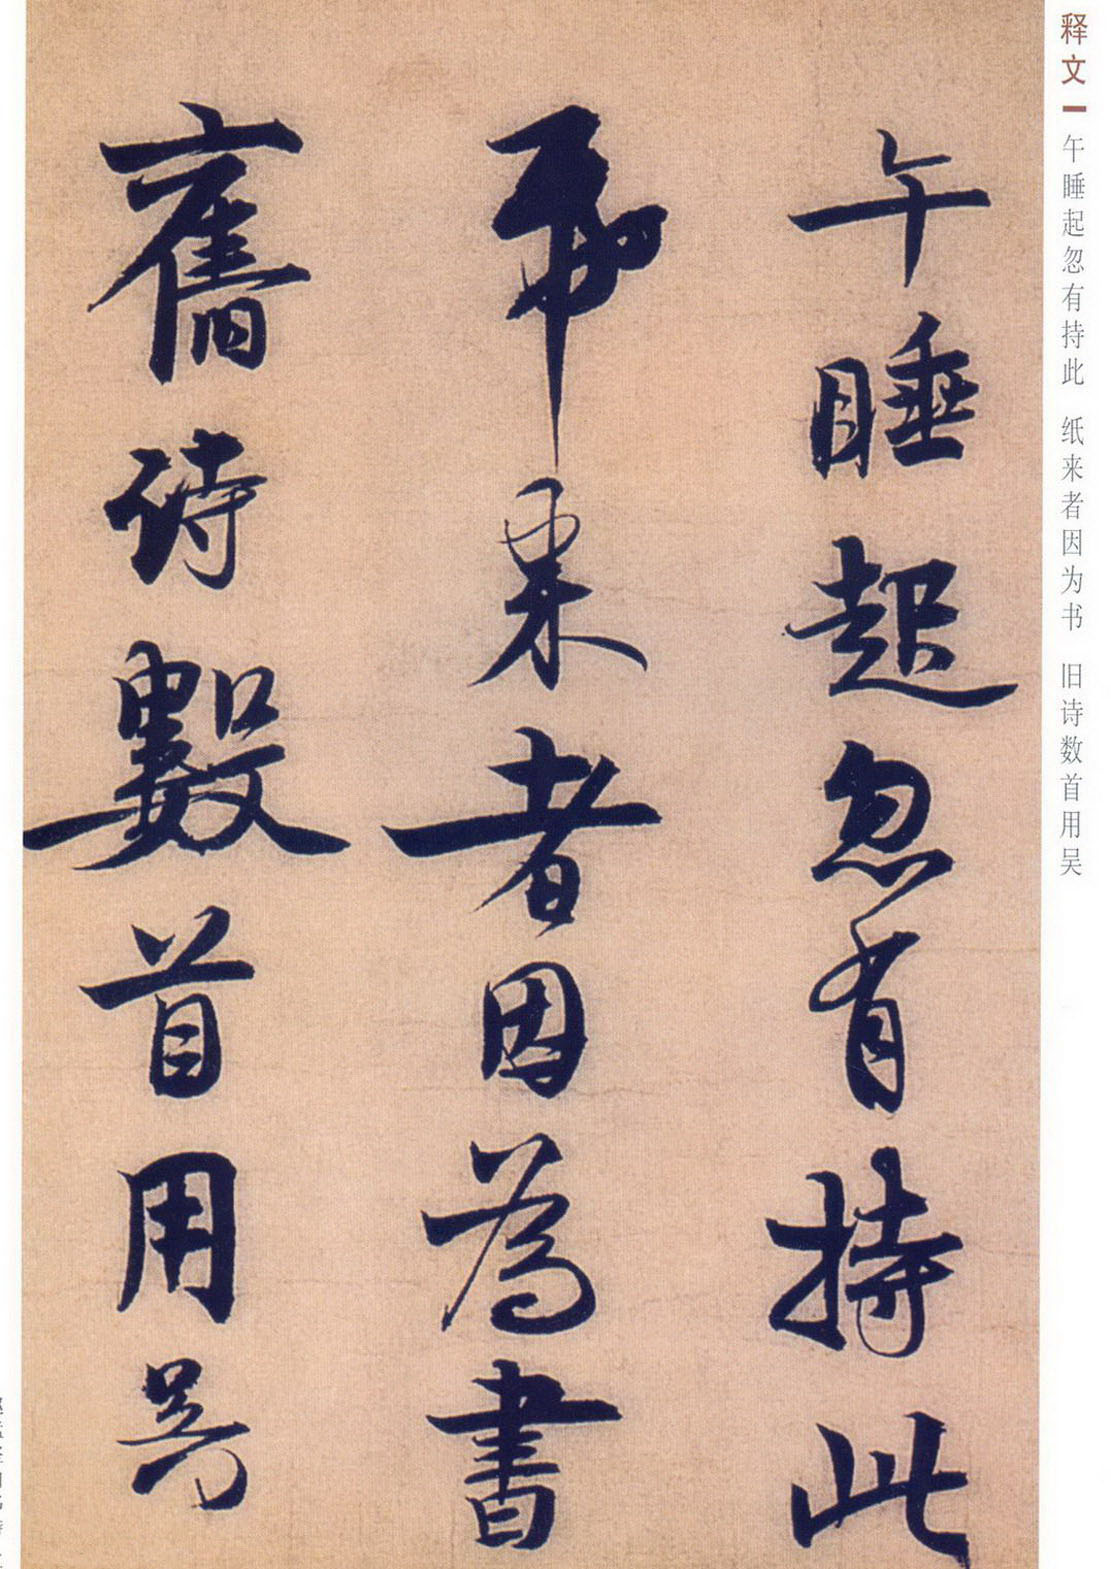 释文 午睡起忽有持此 纸来者因为书 旧诗数首用吴
午睡起忽有持此
帋來者因為書
舊詩數首用吳